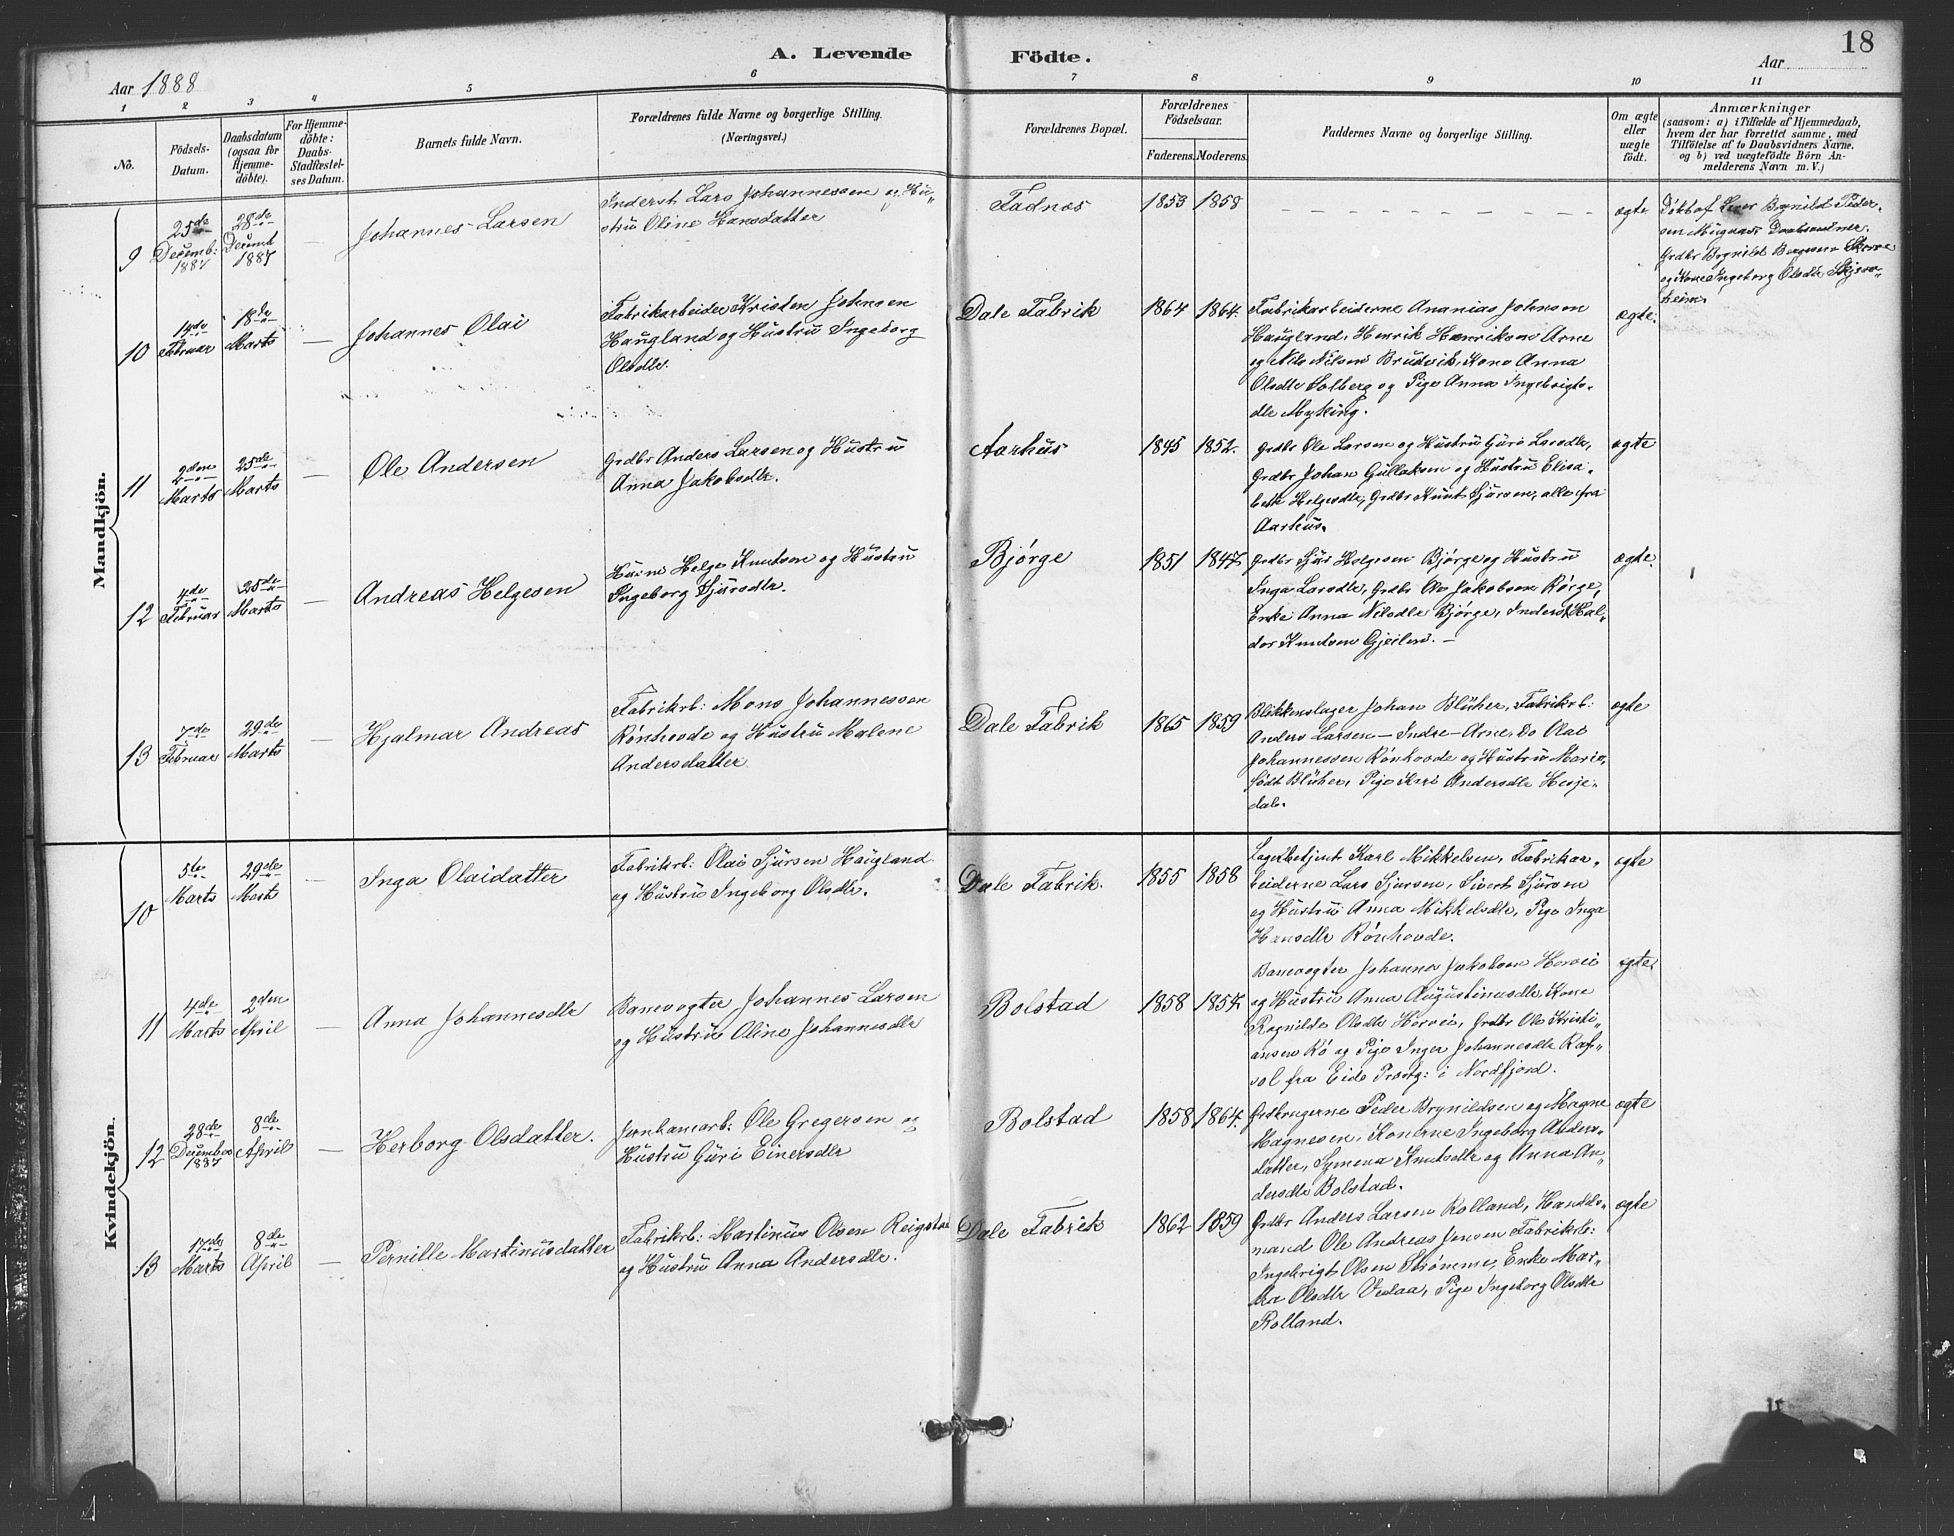 18
A. Levende Födte.
Aar 1888
Aar
1 2 3 4 5 6 7 8 9 10 11
Nö.
Födsels-
Datum.
Daabsdatum
(ogsaa for
Hjemme-
döbte).
For Hjemme-
döbte:
Daabs-
Stadfæstel-
ses Datum.
Barnets fulde Navn.
Forældrenes fulde Navne og borgerlige Stilling.
(Næringsvei.)
Forældrenes Bopæl.
Forældrenes
Födselsaar.
Faderens. Moderens.
Faddernes Navne og borgerlige Stilling.
Om ægte
eller
uægte
födt.
Anmærkninger
(saasom: a) i Tilfælde af Hjemmedaab,
hvem der har forrettet samme, med
Tilföielse af to Daabsvidners Navne.
og b) ved uægtefödte Börn An-
melderens Navn m. V.)
Mandkjön.
9
25de
Decemb:
1887
28de
Decemb
1887
—
Johannes Larsen
Inderst Lars Johannessen og Hu-
stru Oline Hansdatter
Fadnes
1853 1858
ægte
Brynild Peder-
sen
Grdbr Brynild
og Kone Ingeborg Olsdtr Skjera-
heim.
10
14de
Februar
18de
Marts
—
Johannes Olai
Fabrikarbeider Kristen Johnsen
Haugland og Hustru Ingeborg
Olsdtr.
Dale Fabrik
1864 1864.
Fabrikarbeiderne Ananias Johnsen
Haugland, Henrik Henriksens Arne
og Nils Nilsen Brudvik, Kone Anna
Olsdtr Solberg og Pige Anna Ingebrigts-
dtr Myking.
ægte.
11
2den
Marts
25de
Marts
—
Ole Andersen
Grdbr Anders Larsen og Hustru
Anna Jakobsdtr.
Aarhus
1845 1852.
Grdbr Ole Larsen og Hustru Guri Larsdtr,
Grdbr Johan Gullaksen og Hustru Elisa-
beth Helgesdtr, Grdbr Knut Sjursen, alle fra
Aarhus.
ægte
12
4de
Februar
25de
Marts
—
Andreas Helgesen
Husm Helge Knutsen og Hustru
Ingeborg Sjursdtr.
Bjørge
1851 1847.
Grdbr Sjur Helgesen Bjørge og Hustru
Inga Larsdtr, Grdbr Ole Jakobsen Rørge,
Enke Anna Nilsdtr Bjørge, Inderst Hal-
dor Knutsen Gjeilen. —
ægte.
13
7de
Februar
29de
Marts
—
Hjalmar Andreas
Fabrikrb: Mons Johannessen
Rønhovde og Hustru Malene
Andersdatter
Dale Fabrik
1865 1859
Blikkenslager Johan Blüher, Fabrikrb:
Anders Larsen — Indre — Arne, Do Olai
Johannessen Rønhovde og Hustru Marie,
født Blüher, Pige Kari Andersdtr Hesje-
dal.
ægte
Kvindekjön.
10
5te
Marts
29de
Marts
—
Inga Olaidatter
Fabrikrb: Olai Sjursen Haugland
og Hustru Ingeborg Olsdtr.
Dale Fabrik.
1855 1858
Lagerbetjent Karl Mikkelsen, Fabrikar-
beiderne Lars Sjursen, Sivert Sjursen
og Hustru Anna Mikkelsdtr, Pige Inga
Hansdtr Rønhovde.
ægte
11
4de
Marts
2den
April
—
Anna Johannesdtr
Banevogter Johannes Larsen
og Hustru Oline Johannesdtr
Bolstad
1858 1857.
Banevogter Johannes Jakobsen Horvei
og Hustru Anna Augustinusdtr, Kone
Ragnilde Olsdtr Horvei, Grdbr Ole Kristi-
ansen Rø og Pige Inger Johannesdtr
fra Eids Præstg: i Nordfjord.
ægte.
12
28de
December
1887
8de
April
—
Herborg Olsdatter.
Jernbanearb: Ole Gregersen og
Hustru Guri Einersdtr
Bolstad
1858 1864.
Grdbrugerne Peder Brynildsen og Magne
Magnesen, Konerne Ingeborg Anders-
datter, Symena Knutsdtr og Anna An-
dersdtr Bolstad.
ægte
13
17de
Marts
8de
April
—
Pernille Martinusdatter
Fabrikrb: Martinus Olsen Reigstad
og Hustru Anna Andersdtr.
Dale Fabrik
1862 1859
Grdbr Anders Larsen Rolland, Handels-
mand Ole Andreas Jensen Fabrikrb:
Ingebrigt Olsen Strømme, Enke Mar-
tha Olsdtr Vedaa, Pige Ingeborg Olsdtr
Rolland.
ægte